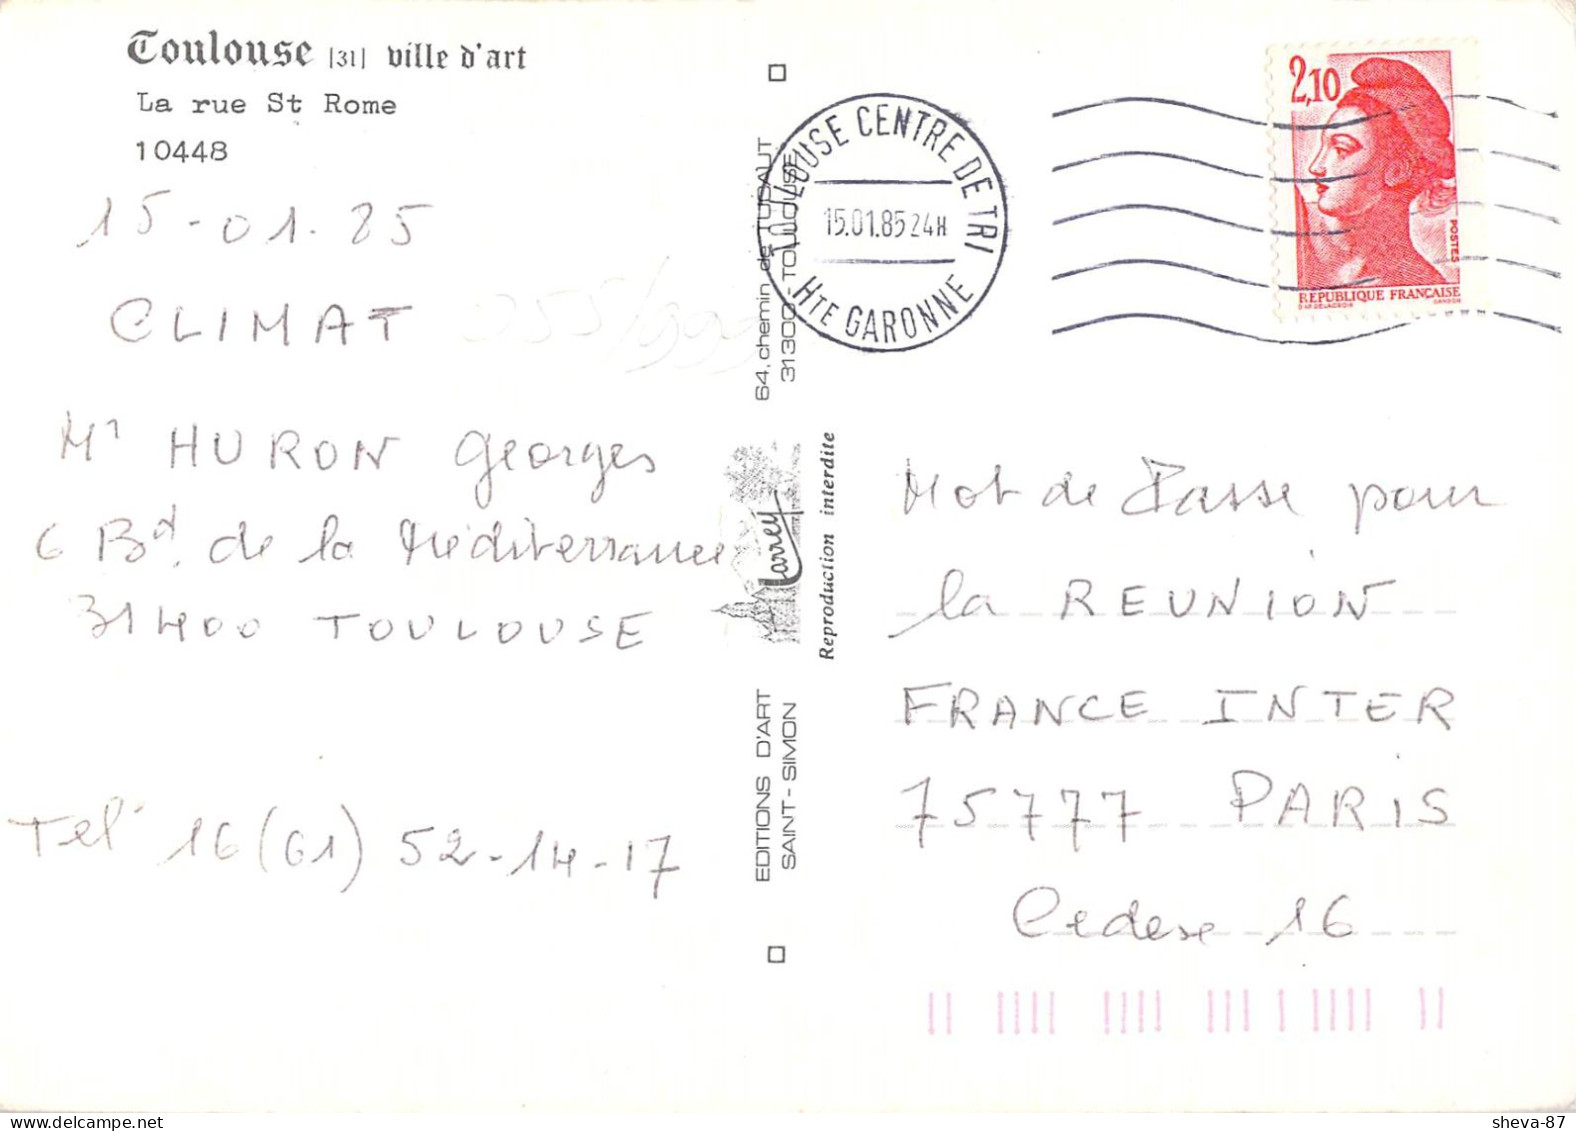 Toulouse [31] ville d'art
La rue St Rome
10448
15-01.85
CLIMAT
Mr HURON Georges
6 Bd. de la Méditerranée
31400 TOULOUSE
Tel 16 (61) 52-14-17
64, chemin de TUCAUT
31300 TOULOUSE
Larrey
Reproduction interdite
EDITIONS D'ART
SAINT-SIMON
TOULOUSE CENTRE DE TRI
15.01.85 24H
HTE GARONNE
2,10
POSTES
REPUBLIQUE FRANÇAISE
D'AP. DELACROIX GANDON
Mot de Passe pour
la REUNION
FRANCE INTER
75777 PARIS
Cedex 16
sheva-87